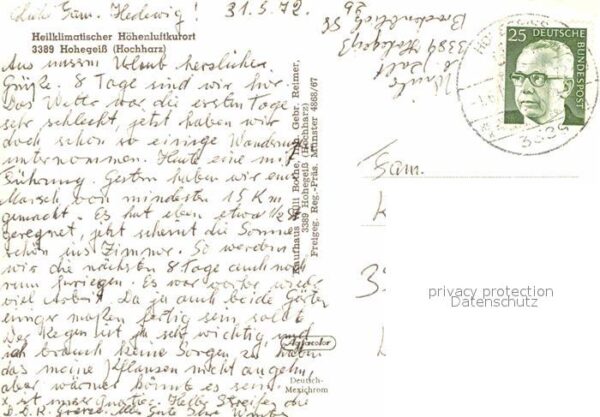 Fam. Hedewig! 31.5.72
Heilklimatischer Höhenluftkurort
3389 Hohegeiß (Hochharz)
Aus unserm Urlaub herzlicher
Grüße. 8 Tage sind wir hier
Das Wetter war die ersten Tage
sehr schlecht jetzt haben wir
doch schon so einige Wanderung
unternommen. Heute eine mit
Führung. Gestern haben wir ein
Marsch von mindesten 15 Km
gemacht. Es hat eben etwas
geregnet, jetzt scheint die Sonne
schon ins Zimmer. So werden
wir die nächsten 8 Tage auch noch
rum kriegen. Es war vorher wieder
viel Arbeit. Da ja auch beide Gärten
einiger maßen fertig sein sollte
Der Regen ist ja sehr wichtig und
ich brauch keine Sorgen zu haben
das meine Pflanzen nicht angehn,
aber wärmer könnte es sein.
x ist unser Quartier. Streifen die
Alles Gute Ihre
Kaufhaus Willi Bothe, Inh. Gebr. Reimer,
3389 Hohegeiß (Hochharz)
Freigeg. Reg.-Präs. Münster 4868/67
Agfacolor
Deutsch-
Mexichrom
3389 Hohegeiß
25 DEUTSCHE
BUNDESPOST
Fam.
K
3
privacy protection
Datenschutz